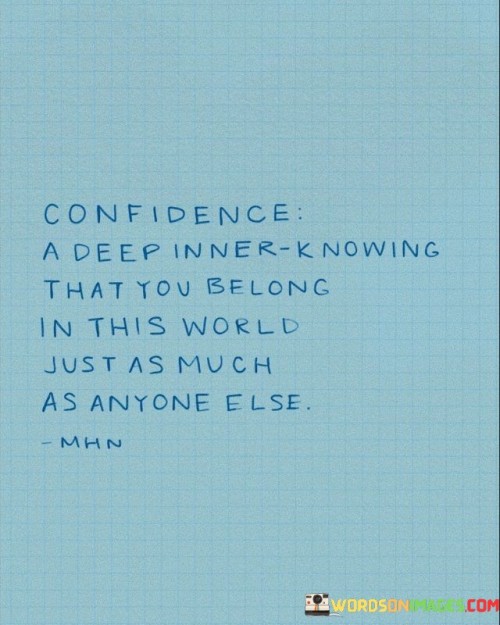 CONFIDENCE:
A DEEP INNER-KNOWING
THAT YOU BELONG
IN THIS WORLD
JUST AS MUCH
AS ANYONE ELSE.
- MHN
WORDSONIMAGES.COM